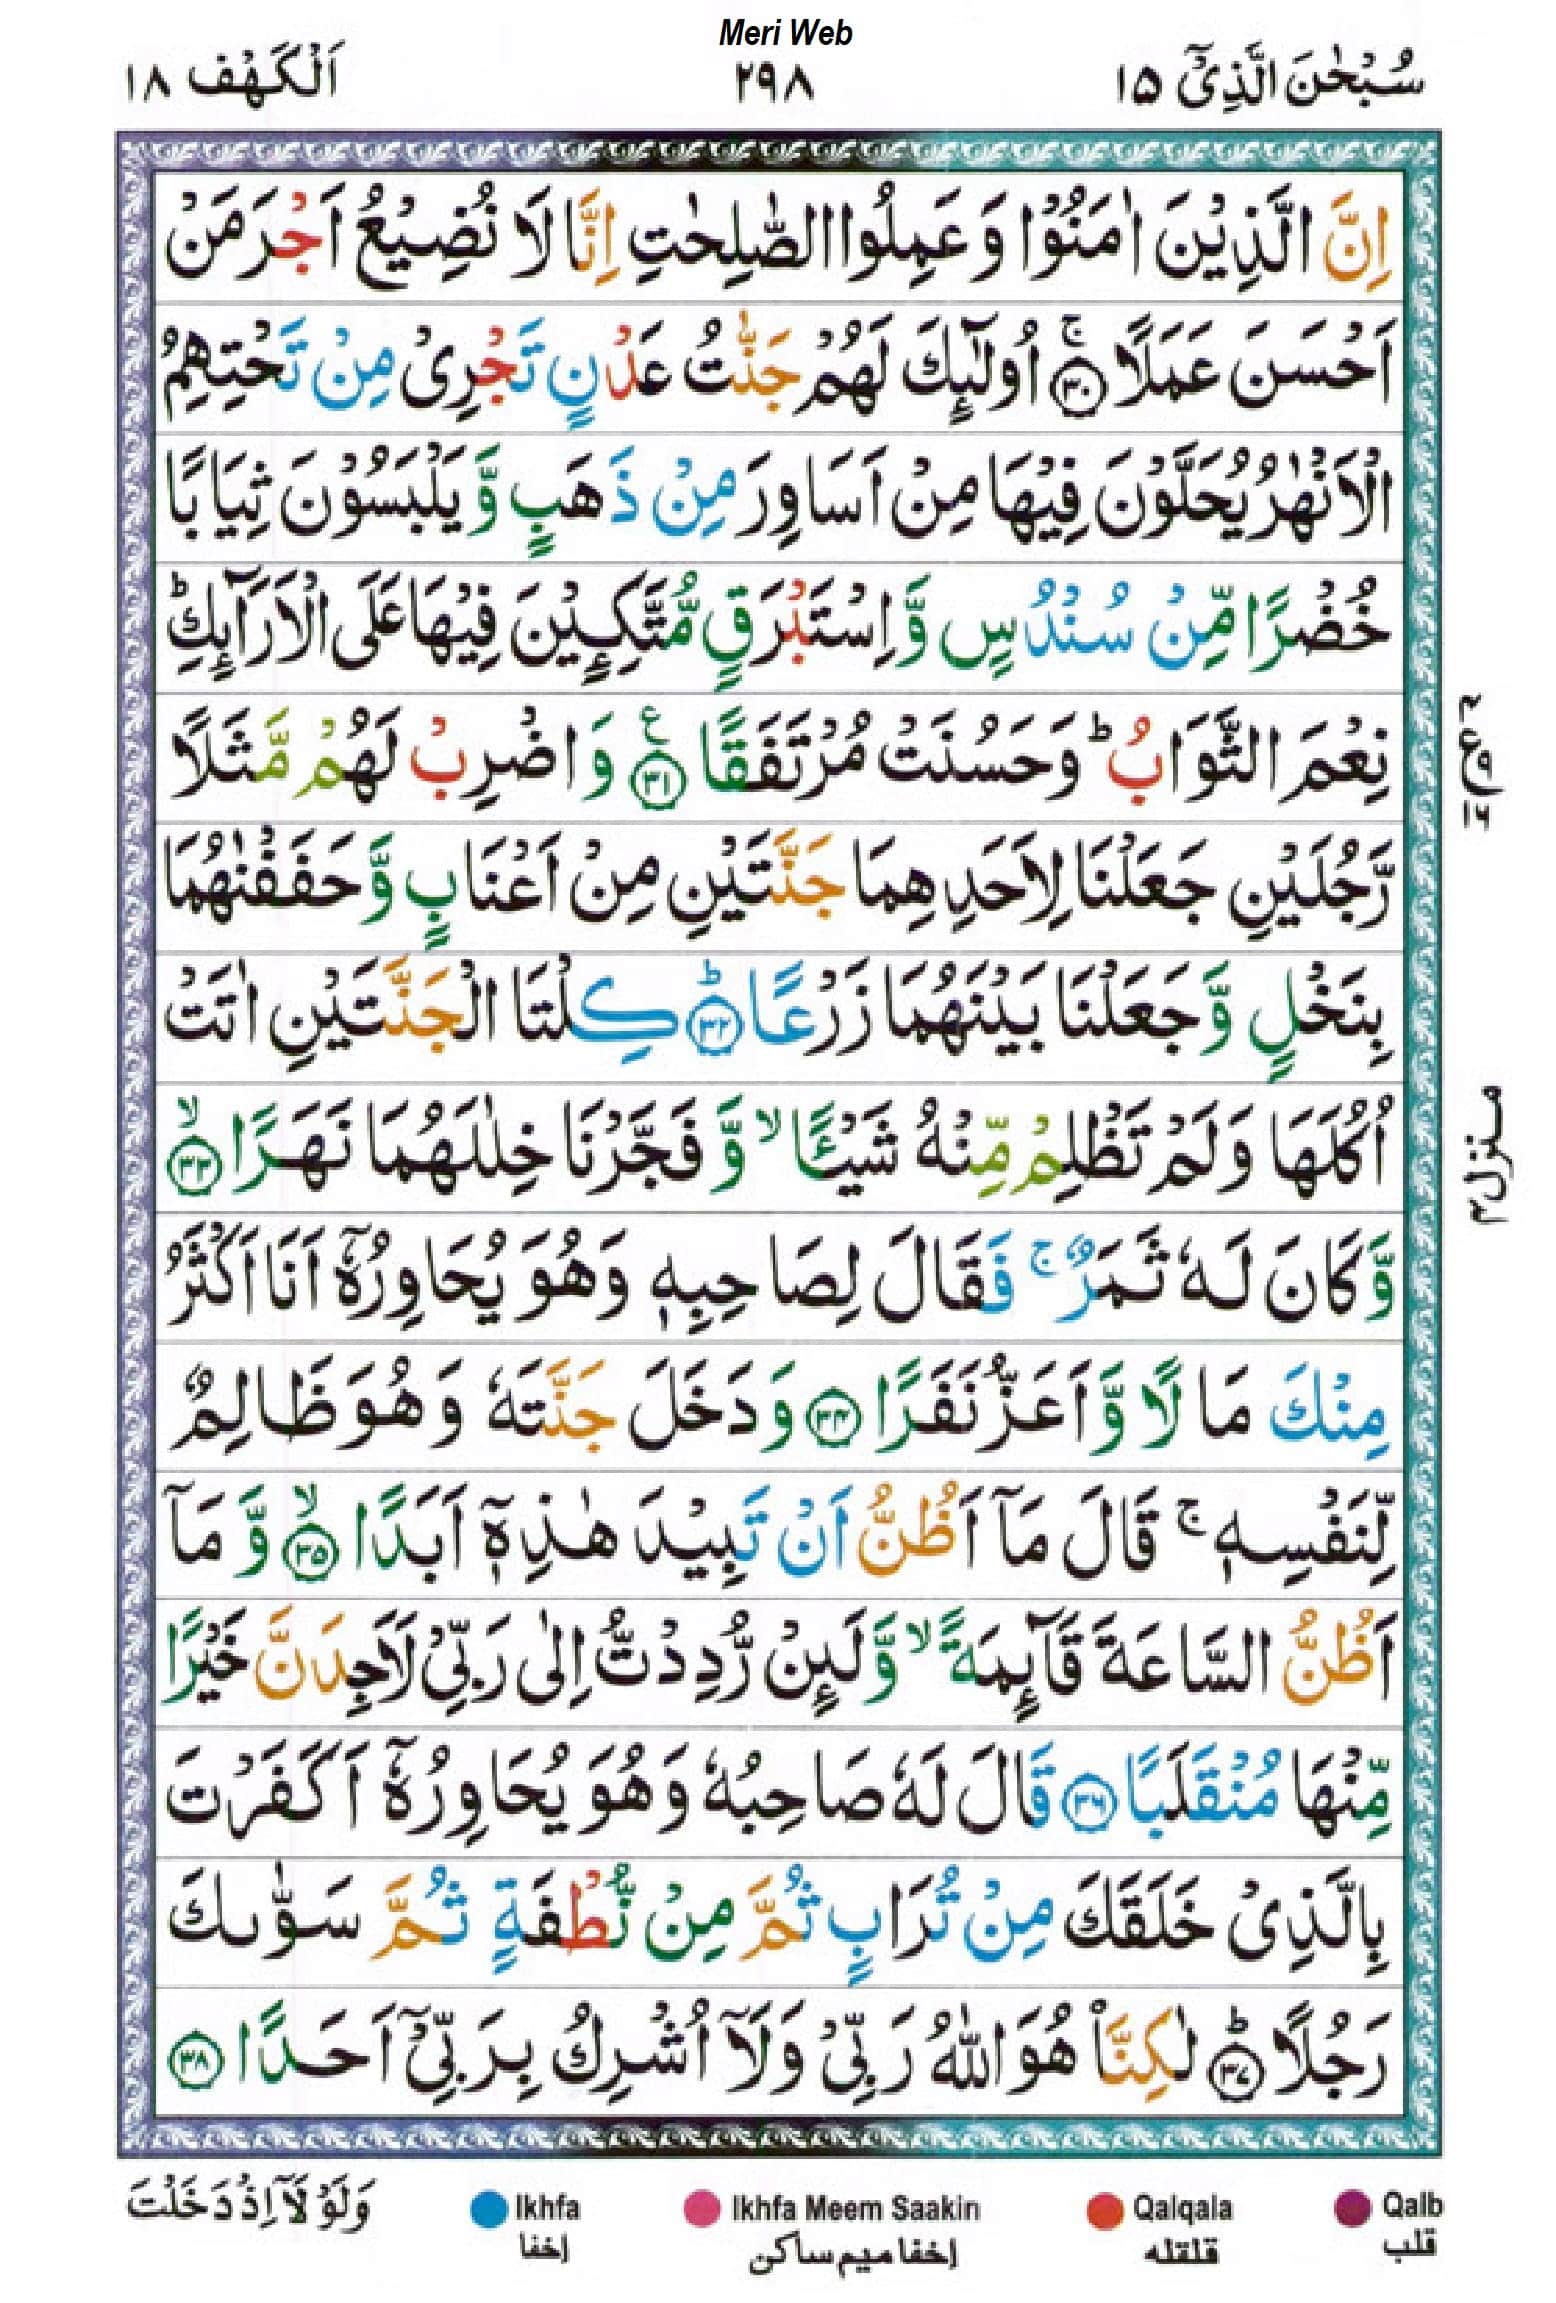 Meri Web
سُبْحٰنَ الَّذِیْۤ ۱۵
۲۹۸
اَلْكَهْف ۱۸
اِنَّ الَّذِیْنَ اٰمَنُوْا وَ عَمِلُوا الصّٰلِحٰتِ اِنَّا لَا نُضِیْعُ اَجْرَ مَنْ
اَحْسَنَ عَمَلًا ۚ ﴿۳۰﴾ اُولٰٓىِٕكَ لَهُمْ جَنّٰتُ عَدْنٍ تَجْرِیْ مِنْ تَحْتِهِمُ
الْاَنْهٰرُ یُحَلَّوْنَ فِیْهَا مِنْ اَسَاوِرَ مِنْ ذَهَبٍ وَّ یَلْبَسُوْنَ ثِیَابًا
خُضْرًا مِّنْ سُنْدُسٍ وَّ اِسْتَبْرَقٍ مُّتَّكِـِٕیْنَ فِیْهَا عَلَی الْاَرَآىِٕكِ ؕ
نِعْمَ الثَّوَابُ ؕ وَ حَسُنَتْ مُرْتَفَقًا ﴿۳۱﴾ ع وَ اضْرِبْ لَهُمْ مَّثَلًا
رَّجُلَیْنِ جَعَلْنَا لِاَحَدِهِمَا جَنَّتَیْنِ مِنْ اَعْنَابٍ وَّ حَفَفْنٰهُمَا
بِنَخْلٍ وَّ جَعَلْنَا بَیْنَهُمَا زَرْعًا ؕ ﴿۳۲﴾ كِلْتَا الْجَنَّتَیْنِ اٰتَتْ
اُكُلَهَا وَ لَمْ تَظْلِمْ مِّنْهُ شَیْـًٔا ۙ وَّ فَجَّرْنَا خِلٰلَهُمَا نَهَرًا ۙ ﴿۳۳﴾
وَّ كَانَ لَهٗ ثَمَرٌ ۚ فَقَالَ لِصَاحِبِهٖ وَ هُوَ یُحَاوِرُهٗۤ اَنَا اَكْثَرُ
مِنْكَ مَالًا وَّ اَعَزُّ نَفَرًا ﴿۳۴﴾ وَ دَخَلَ جَنَّتَهٗ وَ هُوَ ظَالِمٌ
لِّنَفْسِهٖ ۚ قَالَ مَاۤ اَظُنُّ اَنْ تَبِیْدَ هٰذِهٖۤ اَبَدًا ۙ ﴿۳۵﴾ وَّ مَاۤ
اَظُنُّ السَّاعَةَ قَآىِٕمَةً ۙ وَّ لَىِٕنْ رُّدِدْتُّ اِلٰی رَبِّیْ لَاَجِدَنَّ خَیْرًا
مِّنْهَا مُنْقَلَبًا ﴿۳۶﴾ قَالَ لَهٗ صَاحِبُهٗ وَ هُوَ یُحَاوِرُهٗۤ اَكَفَرْتَ
بِالَّذِیْ خَلَقَكَ مِنْ تُرَابٍ ثُمَّ مِنْ نُّطْفَةٍ ثُمَّ سَوّٰىكَ
رَجُلًا ؕ ﴿۳۷﴾ لٰكِنَّا۠ هُوَ اللّٰهُ رَبِّیْ وَ لَاۤ اُشْرِكُ بِرَبِّیْۤ اَحَدًا ﴿۳۸﴾
منزل ۴
وَلَوْ لَاۤ اِذْ دَخَلْتَ
Ikhfa
Ikhfa Meem Saakin
Qalqala
Qalb
إخفا
إخفا میم ساکن
قلقلہ
قلب